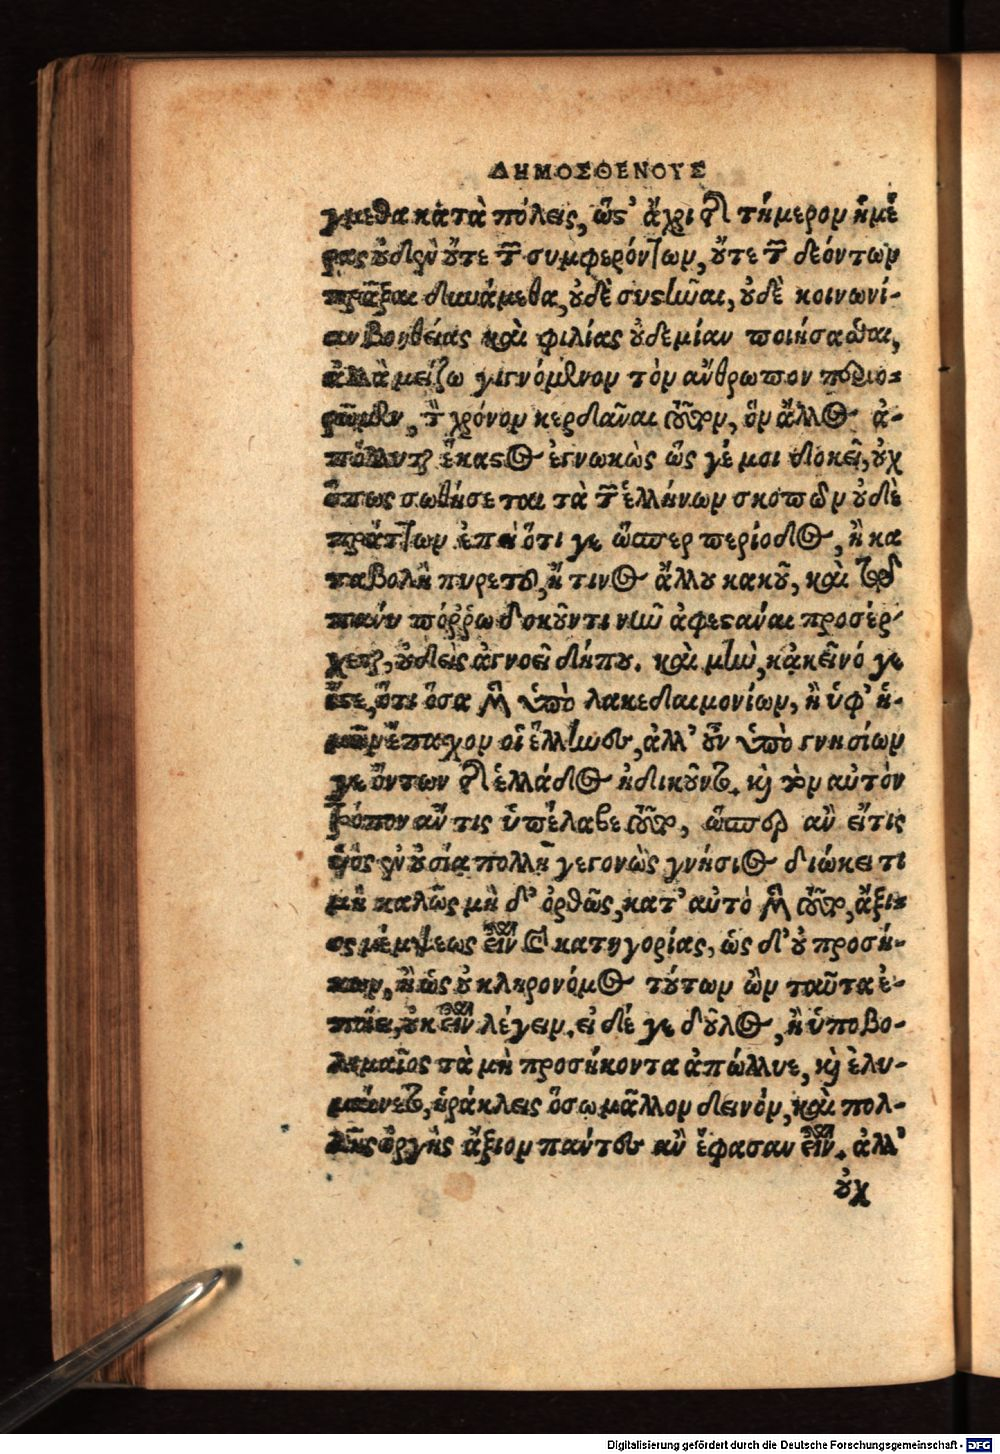 ΔΗΜΟΣΘΕΝΟΥΣ
γμεθα κατὰ πόλεις, ὥστ' ἄχρι τῆς τήμερον ἡμέ
ρας οὐδὲν οὔτε τῶν συμφερόντων, οὔτε τῶν δεόντων
πρᾶξαι δυνάμεθα, οὐδὲ συστῆναι, οὐδὲ κοινωνί-
αν βοηθείας καὶ φιλίας οὐδεμίαν ποιήσασθαι,
ἀλλὰ μείζω γιγνόμενον τὸν ἄνθρωπον περιο-
ρῶμεν, τὸν χρόνον κερδᾶναι τοῦτον, ὃν ἄλλος ἀ-
πόλλυται ἕκαστος ἐγνωκὼς ὥς γέ μοι δοκεῖ, οὐχ
ὅπως σωθήσεται τὰ τῶν ἑλλήνων σκοπῶν οὐδὲ
πράττων ἐπεὶ ὅτι γε ὥσπερ περίοδος, ἢ κα
ταβολὴ πυρετοῦ, ἤ τινος ἄλλου κακοῦ, καὶ τῷ
πάνυ πόῤῥω δοκοῦντι νῦν ἀφεστάναι προσέρ-
χεται, οὐδεὶς ἀγνοεῖ δήπου. καὶ μὴν, κἀκεῖνό γε
ἴστε, ὅτι ὅσα μὲν ὑπὸ λακεδαιμονίων, ἢ ὑφ' ἡ-
μῶν ἔπασχον οἱ ἕλληνες, ἀλλ' οὖν ὑπὸ γνησίων
γε ὄντων τῆς ἑλλάδος ἠδικοῦντο. καὶ τὸν αὐτὸν
τρόπον ἄν τις ὑπέλαβε τοῦτο, ὥσπερ ἂν εἴ τις
υἱὸς ἐν οὐσίᾳ πολλῇ γεγονὼς γνήσιος διώκει τι
μὴ καλῶς μὴ δ' ὀρθῶς, κατ' αὐτὸ μὲν τοῦτο, ἄξι-
ος μέμψεως εἶναι καὶ κατηγορίας, ὡς δ' οὐ προσή-
κων, ἢ ὡς οὐ κληρονόμος τούτων ὢν ταῦτα ἐ-
ποίει, οὐκ εἶναι λέγειν. εἰ δέ γε δοῦλος, ἢ ὑποβο-
λιμαῖος τὰ μὴ προσήκοντα ἀπώλλυε, καὶ ἐλυ-
μαίνετο, ἡράκλεις ὅσῳ μᾶλλον δεινὸν, καὶ πολ-
λῆς ὀργῆς ἄξιον πάντες ἂν ἔφασαν εἶναι. ἀλλ'
οὐχ
Digitalisierung gefördert durch die Deutsche Forschungsgemeinschaft - DFG